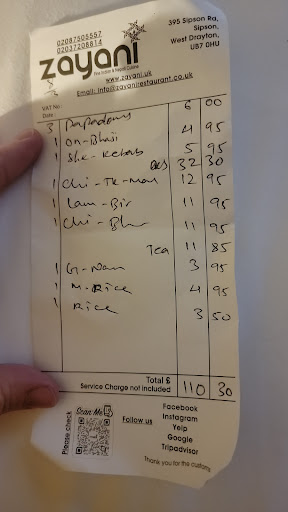 02087505557
02037208814
395 Sipson Rd,
Sipson,
West Drayton,
UB7 0HU
zayani
Fine Indian & Nepali Cuisine
www.zayani.uk
Email: info@zayanirestaurant.co.uk
VAT No:
Date
3 Papadoms 6 00
1 On-Bhaji 4 95
1 She-Kebab 5 95
Des 32 30
1 Chi-Tk-Mas 12 95
1 Lam-Bir 11 95
1 Chi-Bhu 11 95
Tea 11 85
1 G-Nan 3 95
1 M-Rice 4 95
1 Rice 3 50
Total £
Service Charge not included 110 30
Please check
Scan Me
Follow us
Facebook
Instagram
Yelp
Google
Tripadvisor
Thank you for the custom